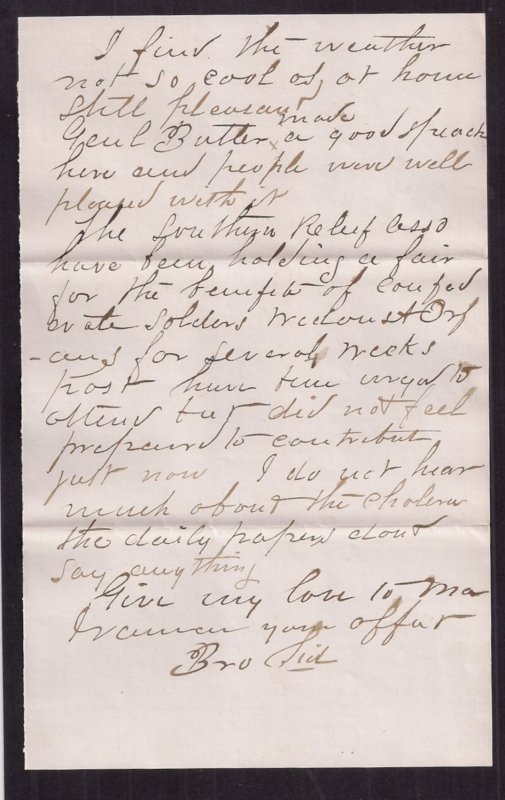 I find the weather
not so cool as, at home
still pleasant
Genl Butler made a good speach
here and people were well
pleased with it
The Southern Relief Asso
have been holding a fair
for the benefit of confed
erate Solders Widows & Orf
-ans for several weeks
past have been urged to
attend but did not feel
prepared to contribute
just now I do not hear
much about the cholera
the daily papers dont
say anything
Give my love to Ma
I remain your affect
Bro Sid